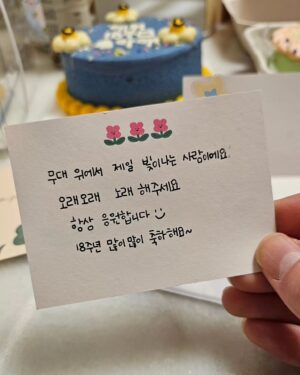 무대 위에서 제일 빛이나는 사람이에요
오래오래 노래 해주세요
항상 응원합니다
18주년 많이많이 축하해요~